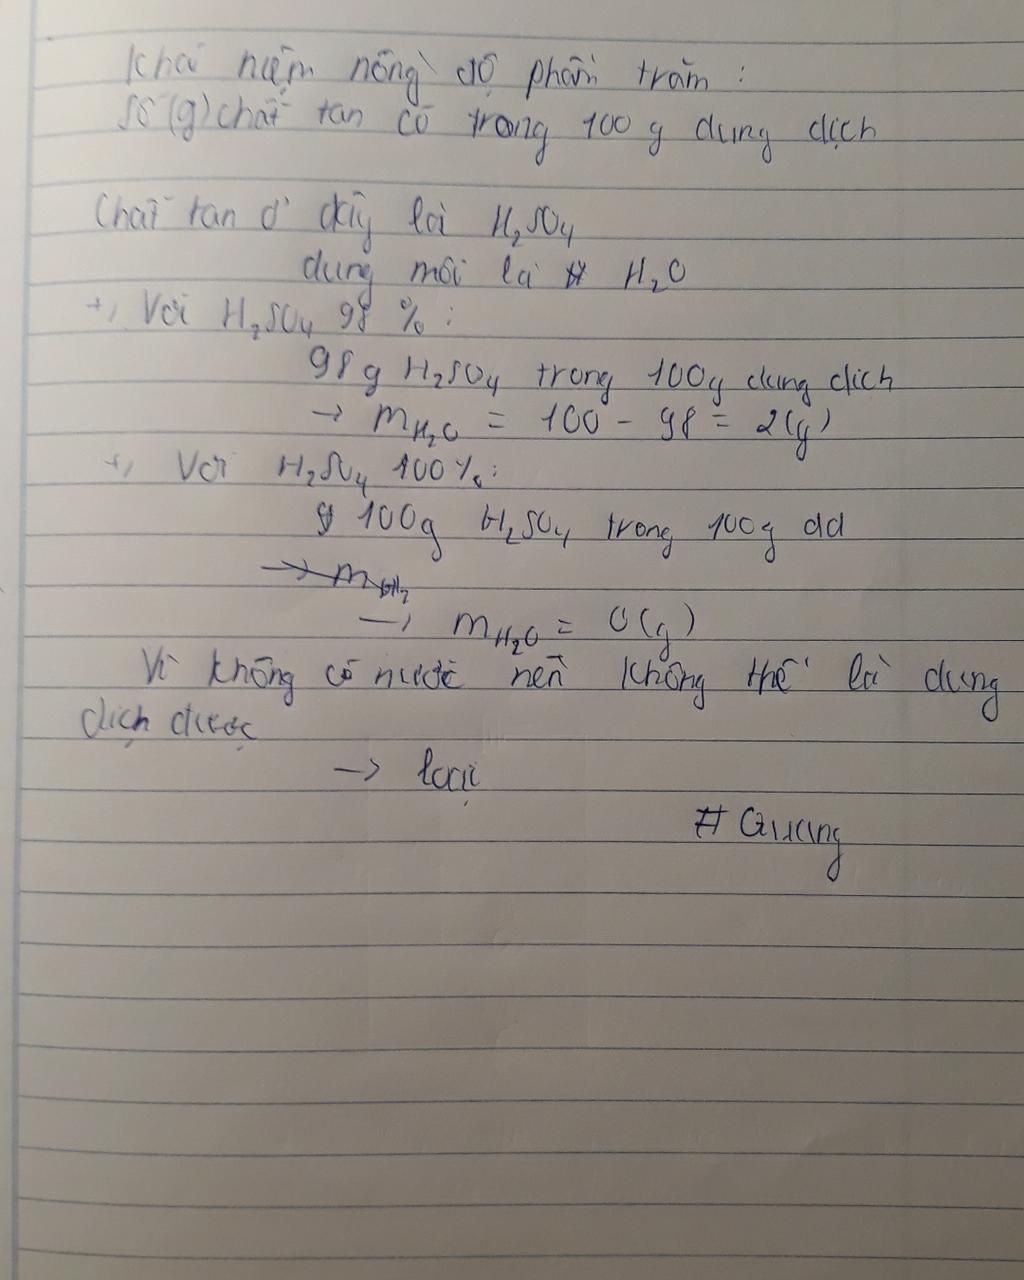 Khái niệm nồng độ phần trăm :
Số (g) chất tan có trong 100 g dung dịch
Chất tan ở đây là H₂SO₄
dung môi là H₂O
+, Với H₂SO₄ 98 % :
98 g H₂SO₄ trong 100g dung dịch
→ m_H₂O = 100 - 98 = 2 (g)
+, Với H₂SO₄ 100% :
100g H₂SO₄ trong 100g dd
→ m
→ m_H₂O = 0 (g)
Vì không có nước nên không thể là dung
dịch được
→ loại
# Quang